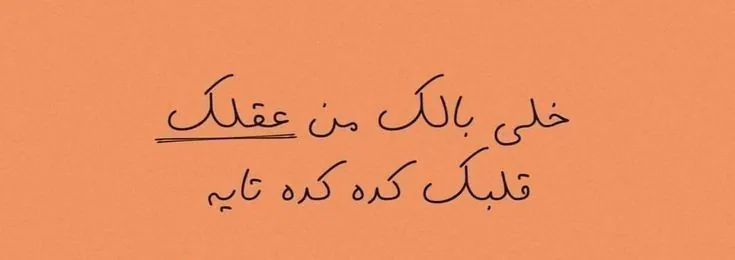 خلى بالك من عقلك
قلبك كده كده تايه